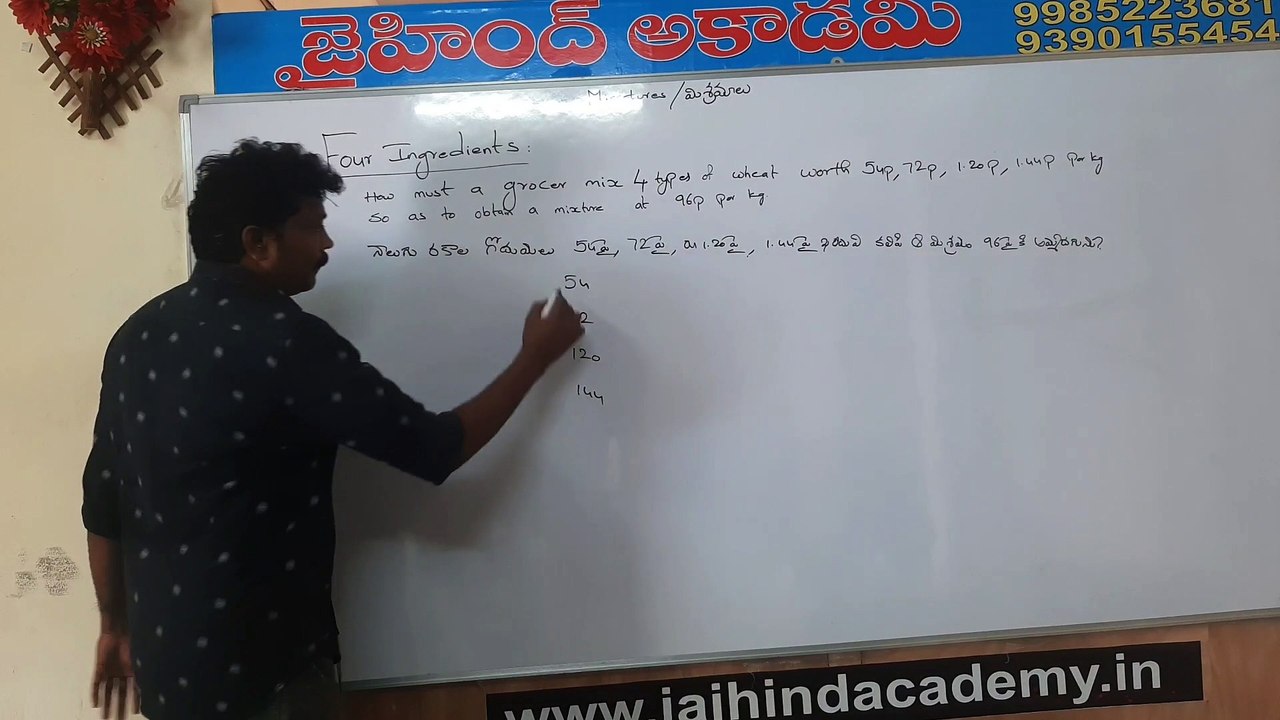 జైహింద్ అకాడమి
9985223681
9390155454
Mixtures/మిశ్రమాలు
Four Ingredients:
How must a grocer mix 4 types of wheat worth 54p, 72p, 1.20p, 1.44p per kg
so as to obtain a mixture at 96p per kg
నాలుగు రకాల గోధుమలు 54పై, 72పై, రు1.20పై, 1.44పై కలిపి ఆ మిశ్రమం 96పై కి
54
2
120
144
www.jaihindacademy.in